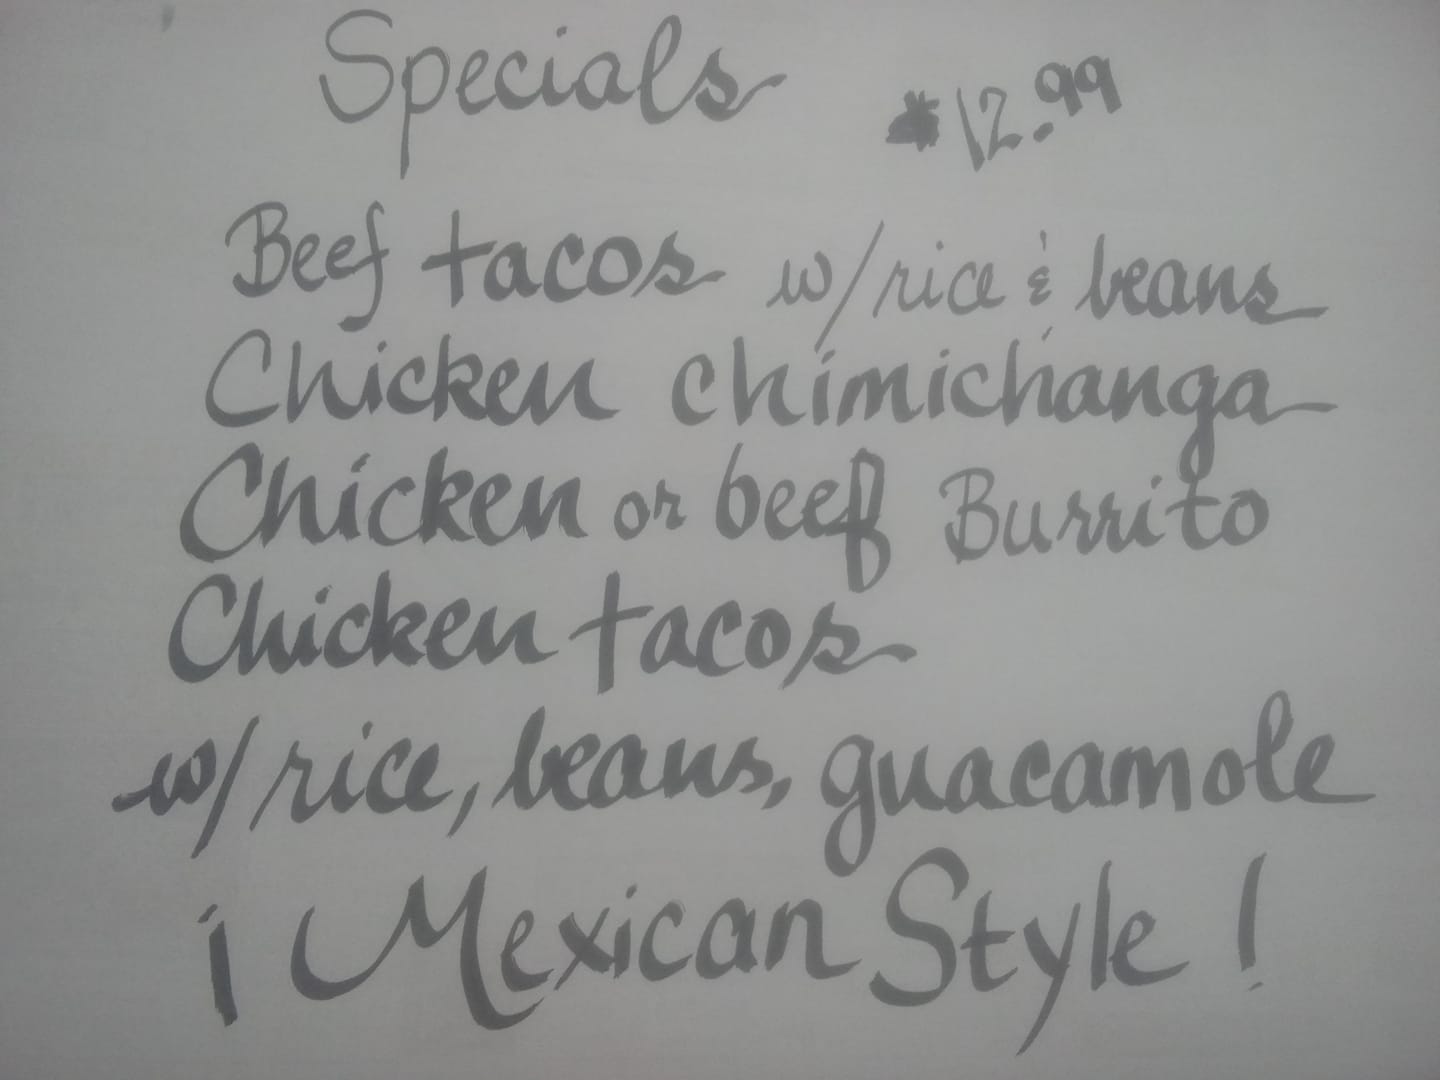 Specials $12.99
Beef tacos w/rice & beans
Chicken chimichanga
Chicken or beef Burrito
Chicken tacos
w/rice, beans, guacamole
¡Mexican Style!